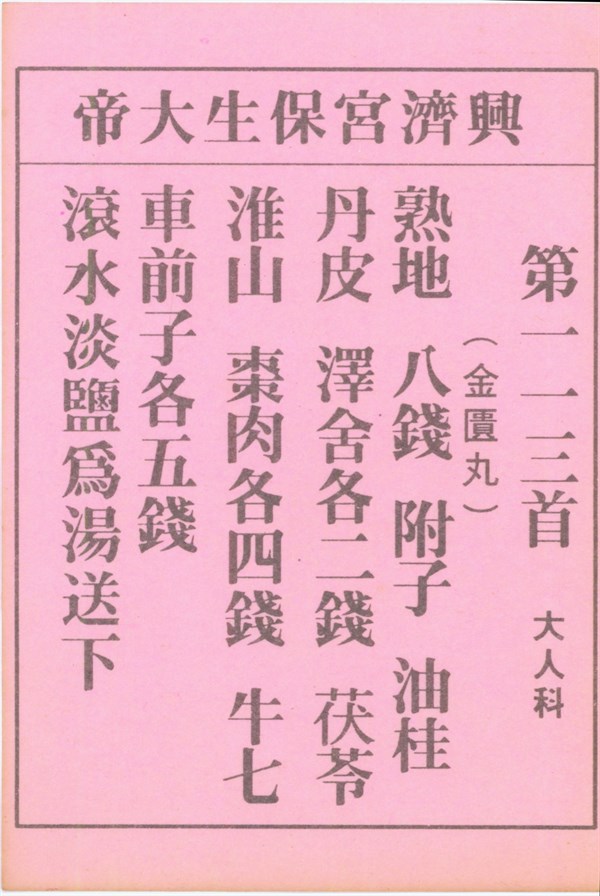 興濟宮保生大帝
第一一三首 大人科
（金匱丸）
熟地 八錢 附子 油桂
丹皮 澤舍各二錢 茯苓
淮山 棗肉各四錢 牛七
車前子各五錢
滾水淡鹽為湯送下